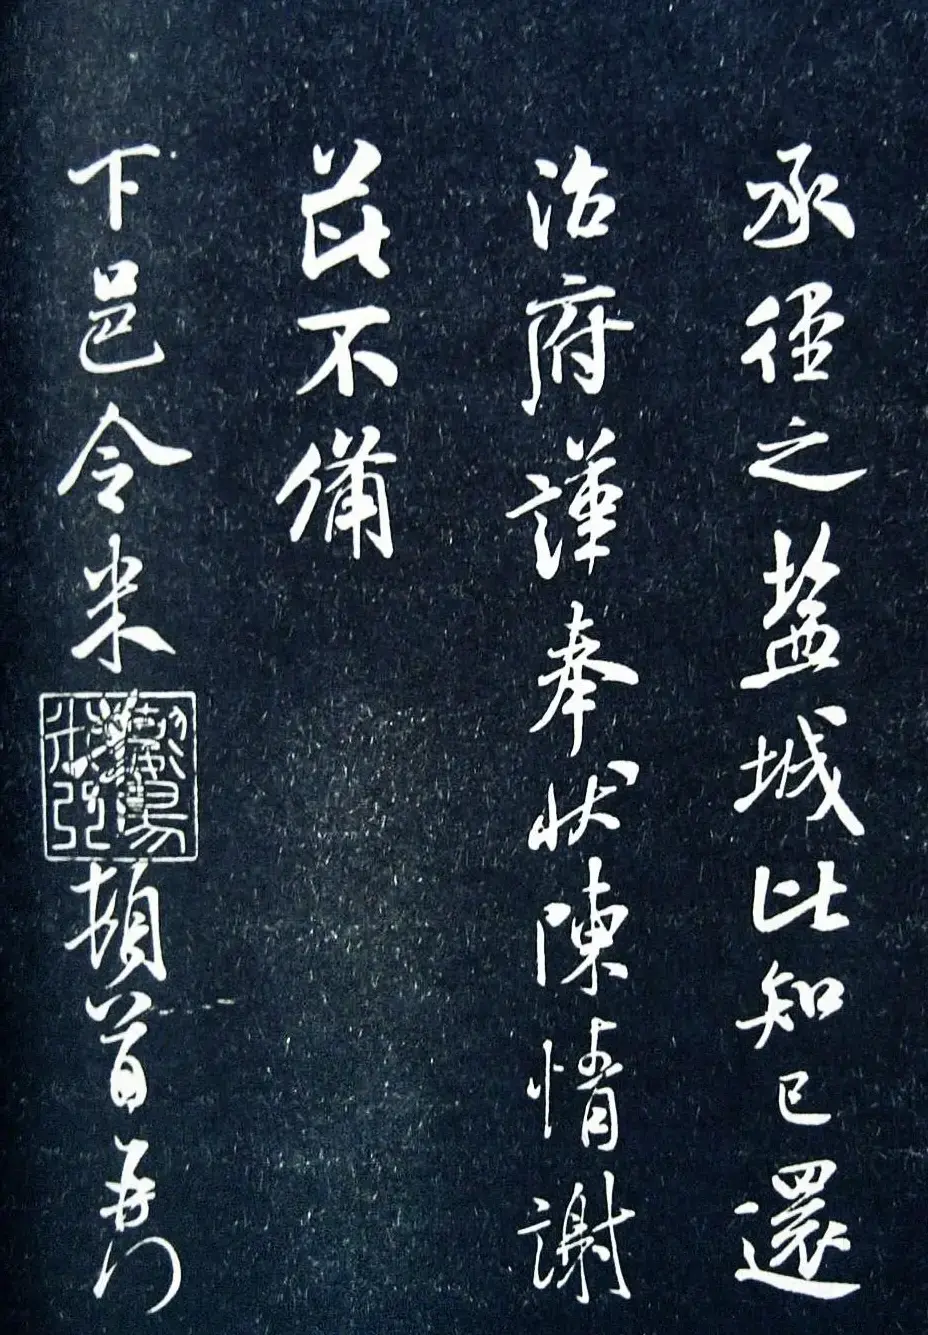 承徑之鹽城比知已還
治府謹奉状陳情謝
不備
下邑令米
頓首再拜